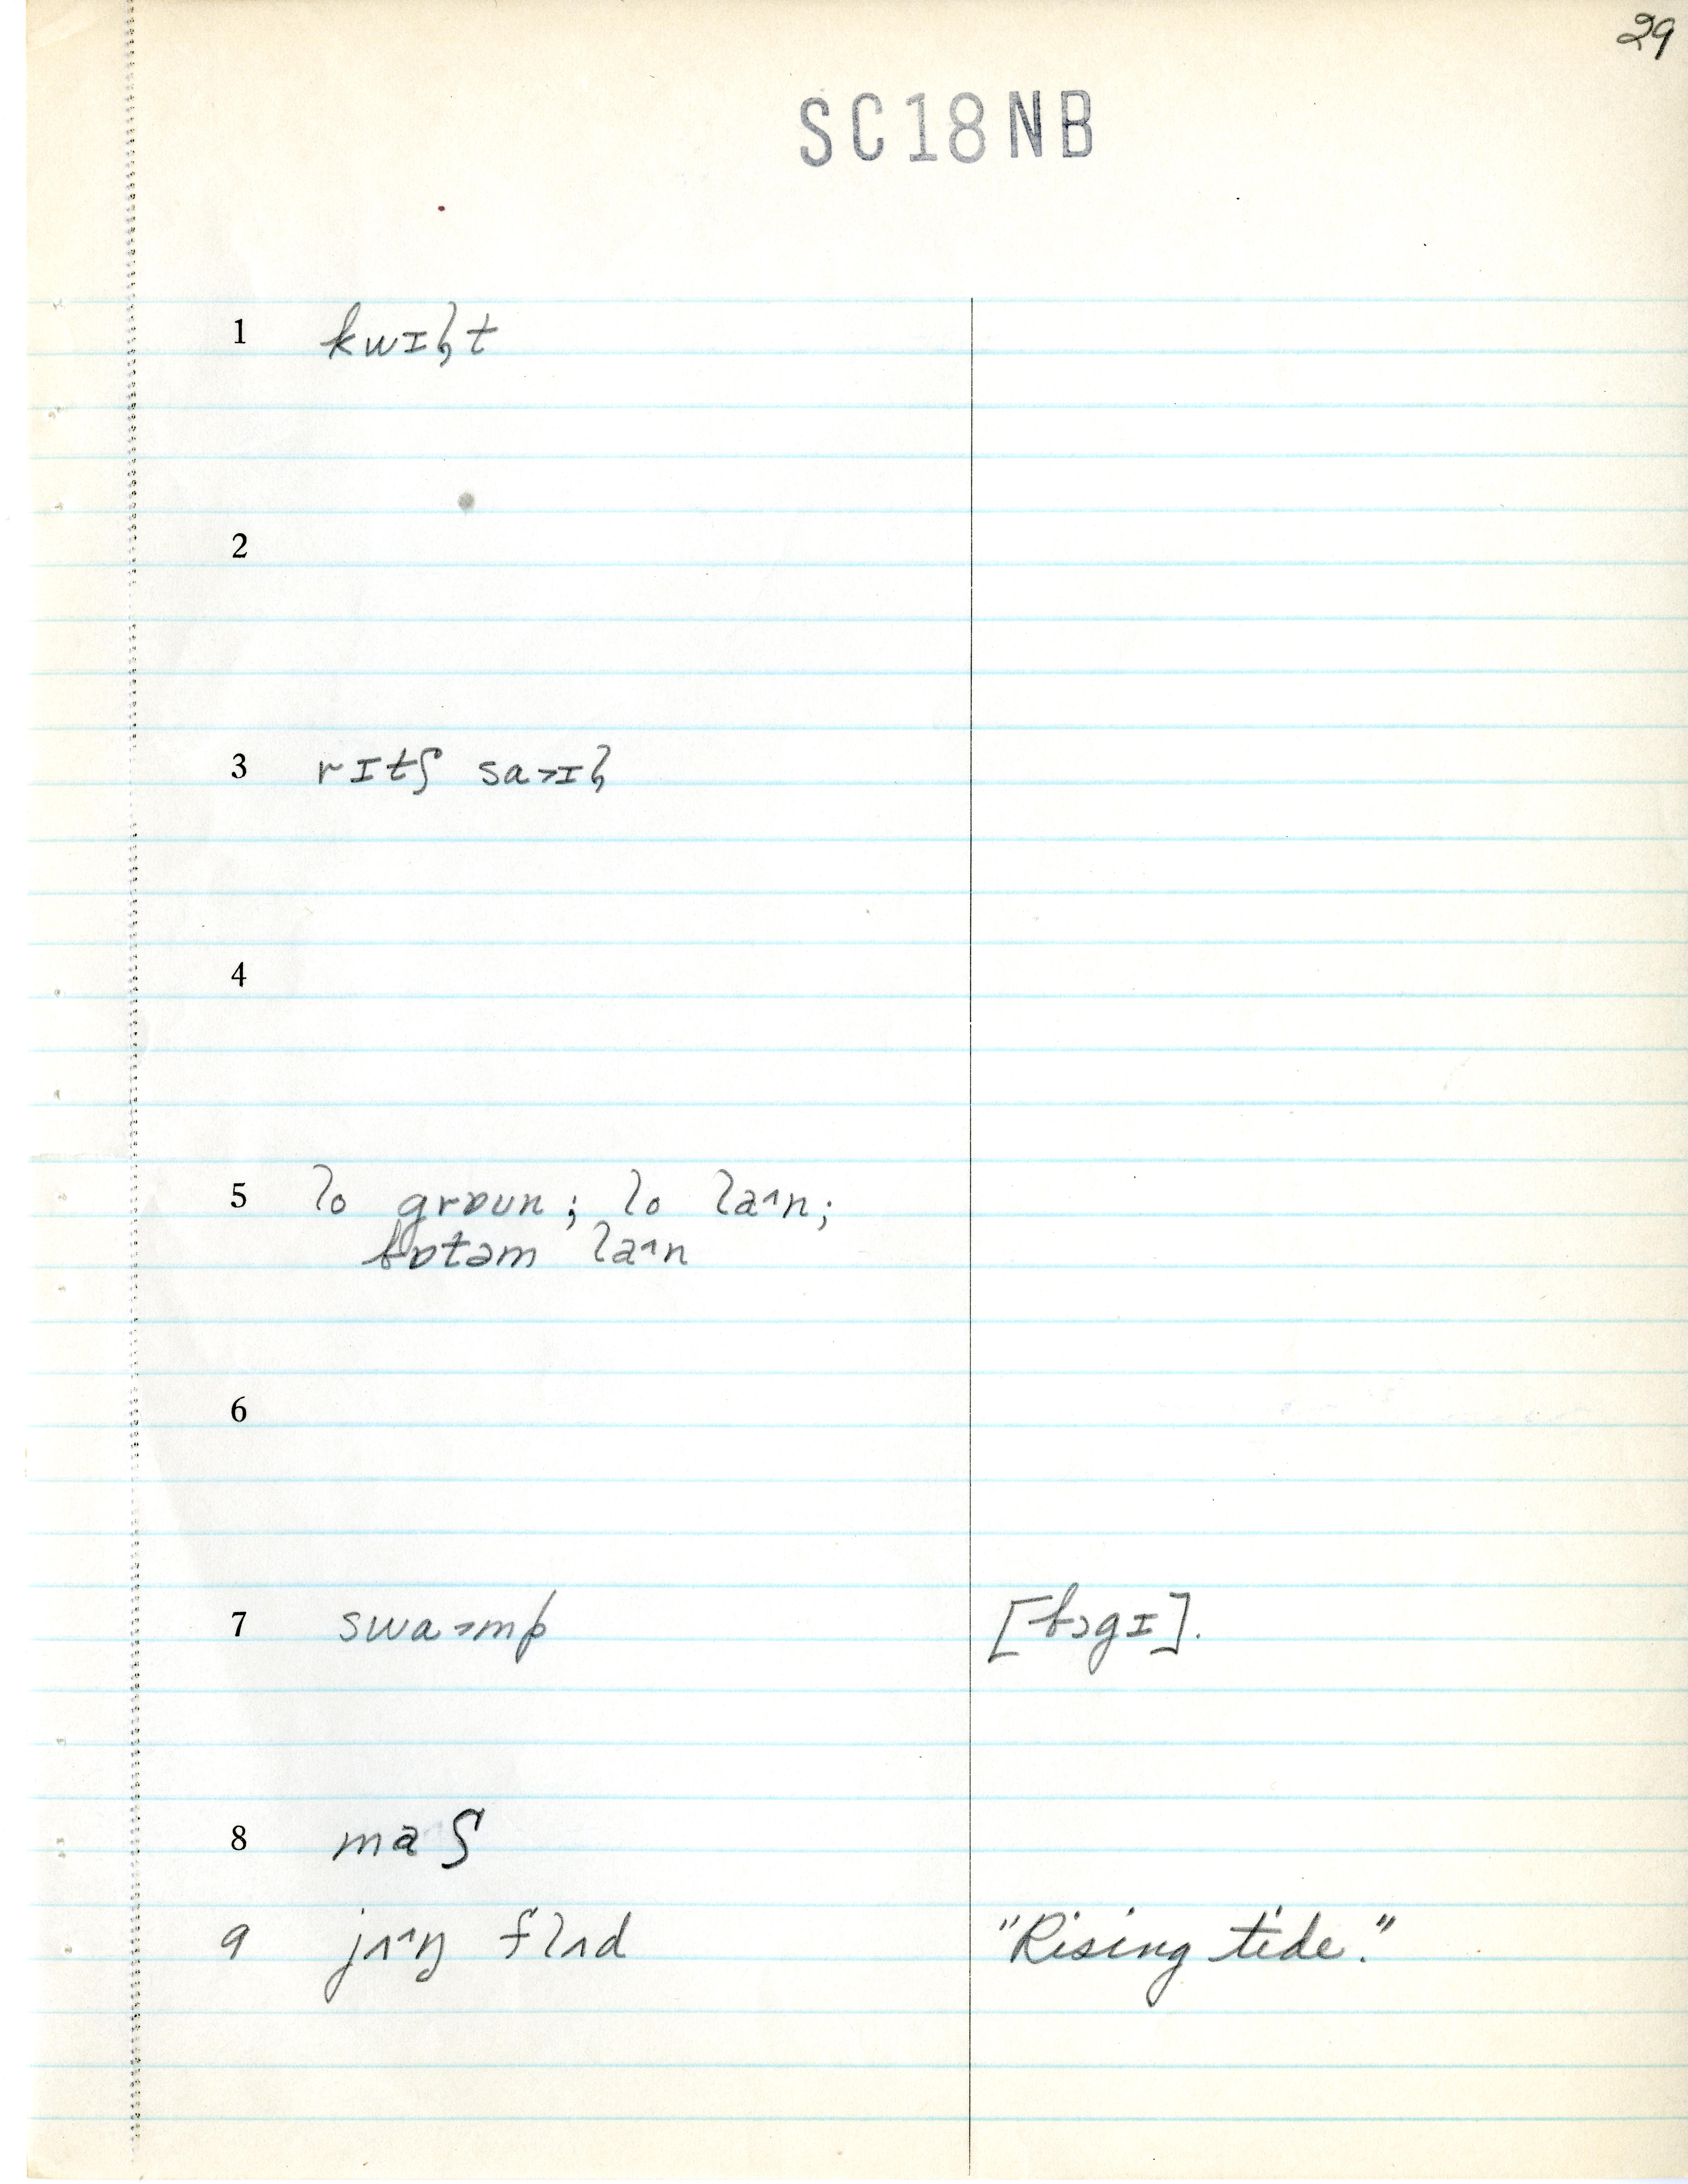 29
SC18NB
1 kwɪl̥t
2
3 rɪtʃ sa˃ɪl̥
4
5 lo grɒʊn; lo la˄n;
bɒtəm la˄n
6
7 swa˃mp [bɔgɪ].
8 maʃ
9 jʌ˄ŋ flʌd "Rising tide."